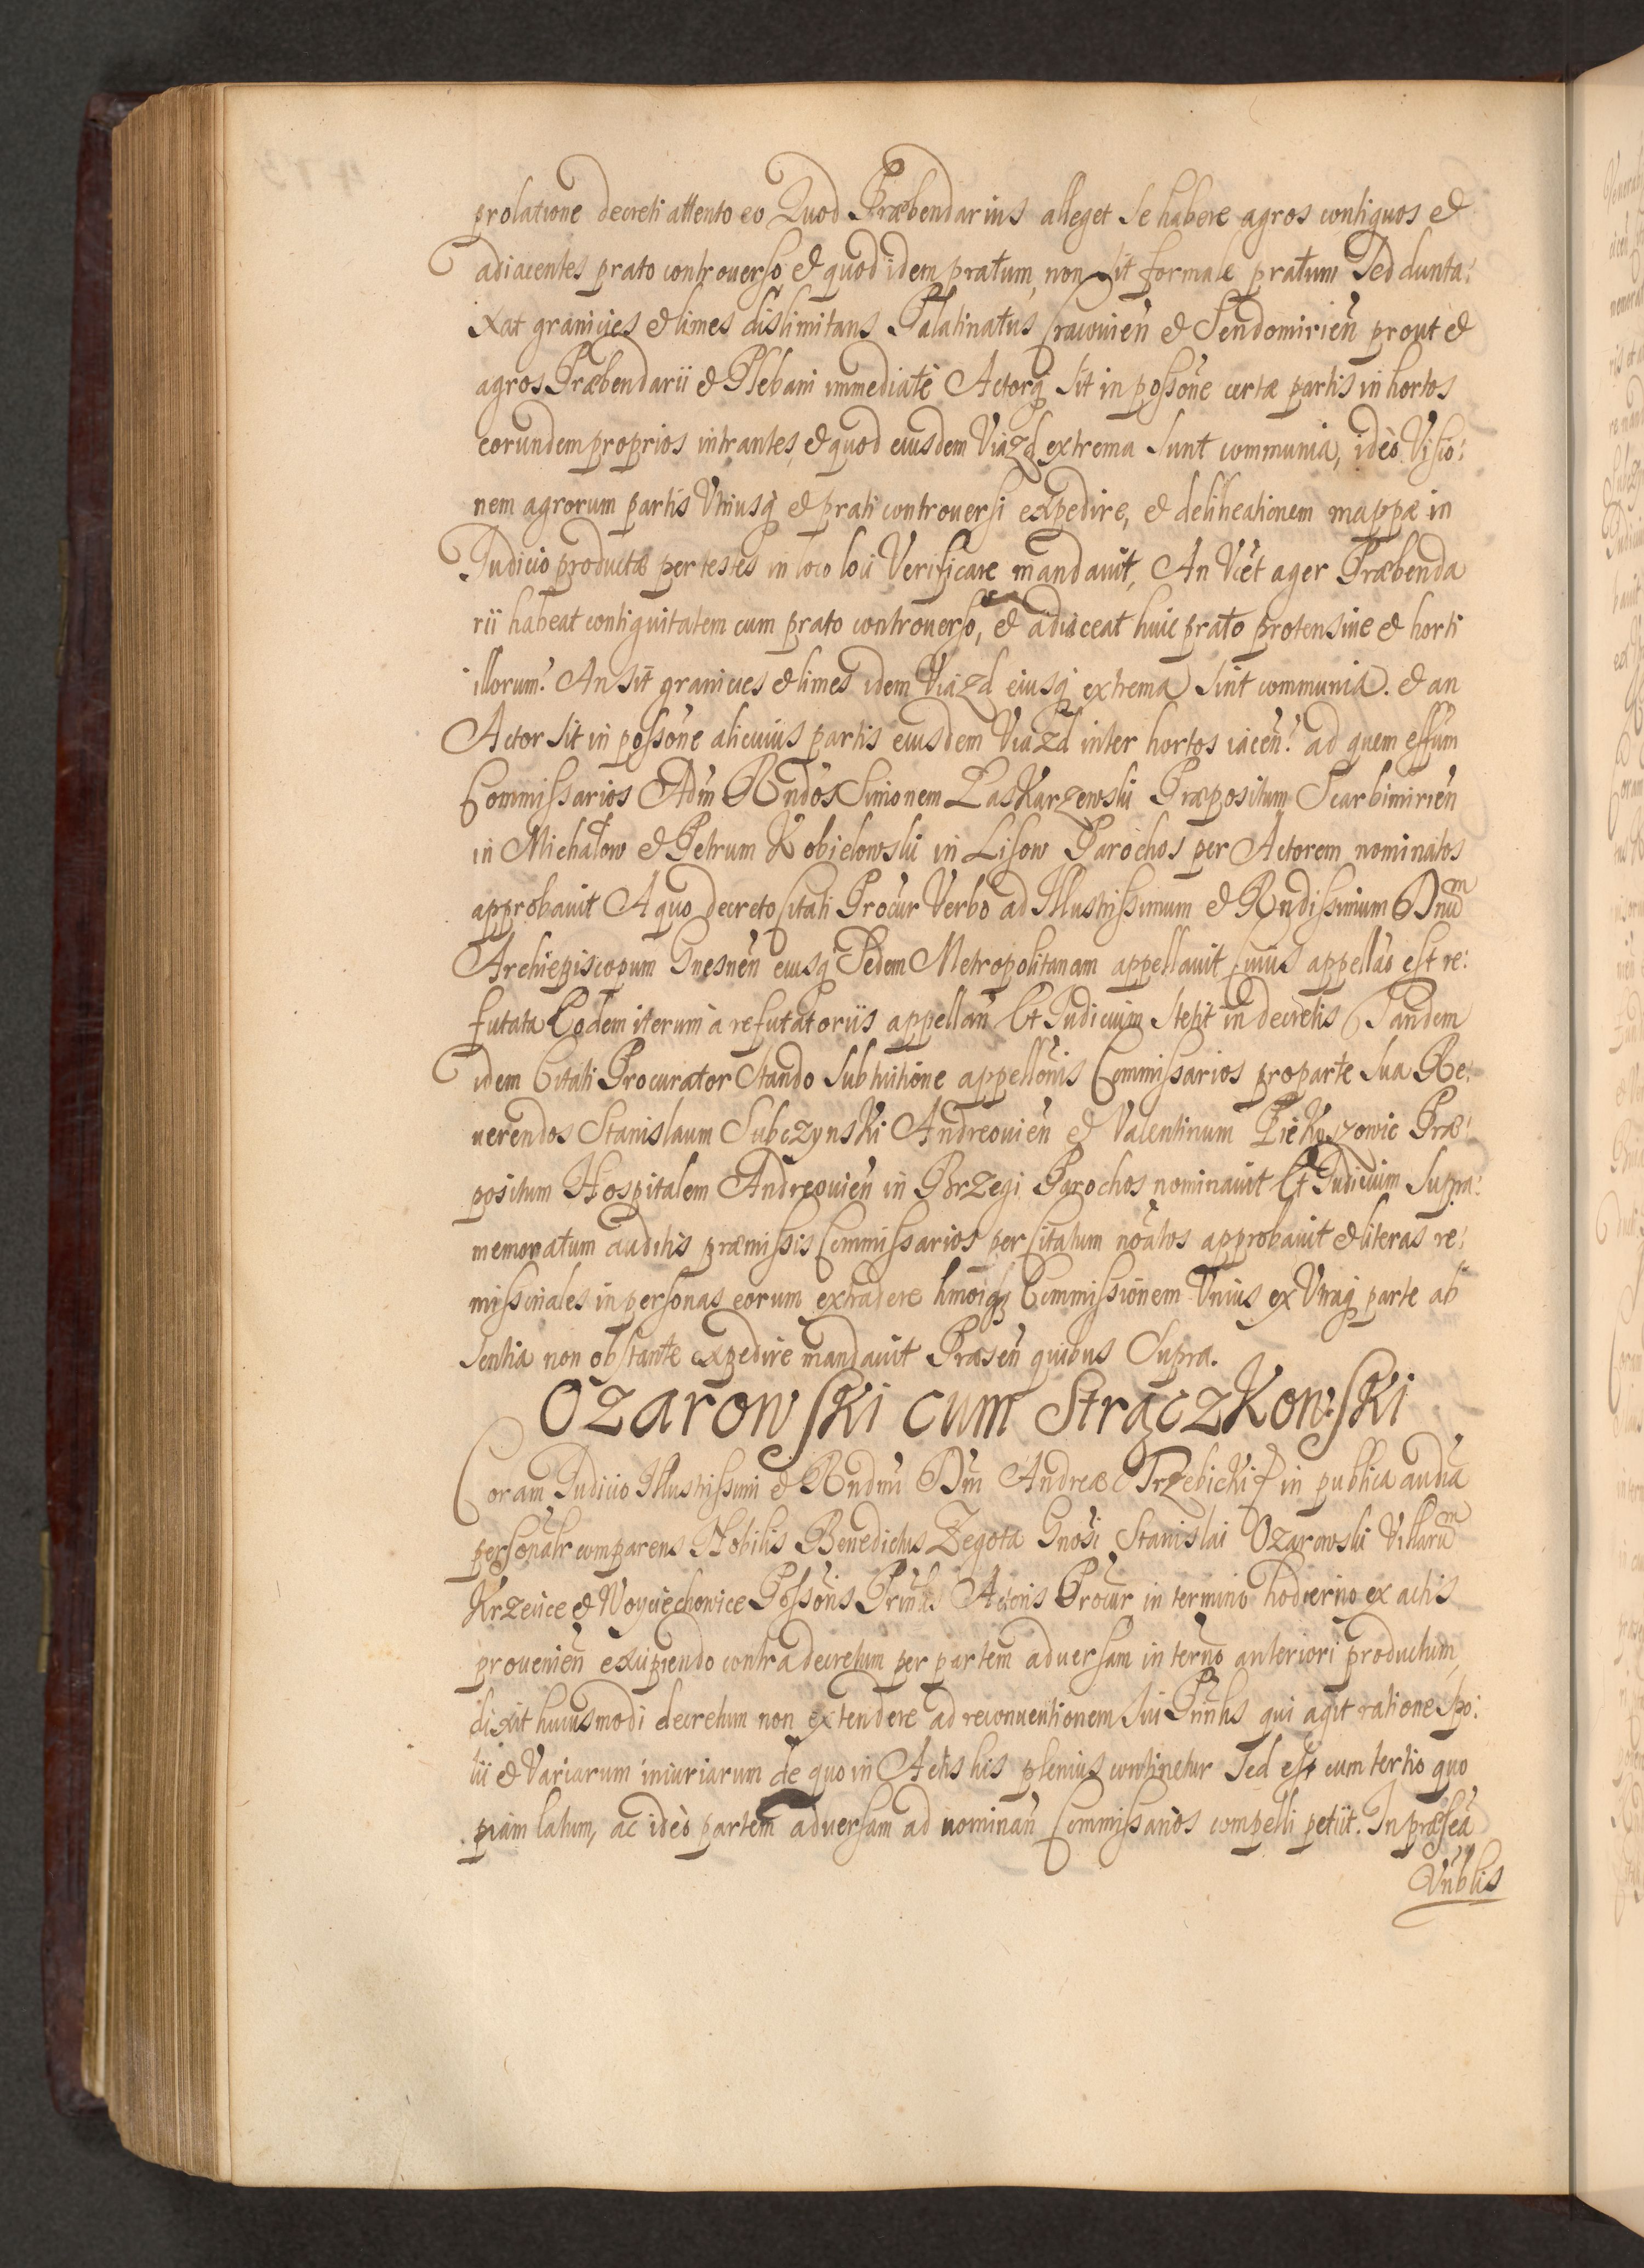 prolatione decreti attento eo Quod Præbendarius alleget se habere agros contiguos et
adiacentes prato controuerso, et quod idem pratum, non sit formale pratum sed dunta:
xat granicies et limes dislimitans Palatinatus Cracouien̄ et Sendomirien̄ prout et
agros Præbendarii et Plebani immediatè Actorq́ sit in possone certæ partis in hortos
eorundem proprios intrantes, et quod eiusdem Viazd extrema sunt communia, ideò Visio:
nem agrorum partis Vtriusq́ et prati controuersi expedire, et delineationem mappæ in
Judicio productæ per testes in loco loci Verificare mandauit, An Vc̄et ager Præbenda
rii habeat contiguitatem cum prato controuerso, et adiaceat huic prato protensiue et horti
illorum? An sit granicies et limes idem Viazd eiusq́ extrema sint communia. et an
Actor sit in possone alicuius partis eiusdem Viazd inter hortos iacen̄? ad quem effum
Commissarios Adm̄ Rndos Simonem Laskarzewski Præpositum Scarbimirien̄
in Michałow et Petrum Kobielowski in Lisow Parochos per Actorem nominatos
approbauit A quo decreto Citati Procur Verbo ad Illustrissimum et Rndissimum Dnum
Archiepiscopum Gnesnen̄ eiusq́ Sedem Metropolitanam appellauit Cuius appellão est re:
futata Eodem iterum à refutatoriis appellan̄ Et Judicium stetit in decretis Tandem
idem Citati Procurator Stando sub tuitione appellonis Commissarios pro parte sua Re:
uerendos Stanislaum Subczynski Andreouien̄ et Valentinum Piekuszowic Præ:
positum Hospitalem Andreouien̄ in Brzegi Parochos nominauit Et Judicium supra:
memoratum auditis præmissis Commissarios per Citatum noatos approbauit et literas re:
missionales in personas eorum extradere hmoiq́ Commissionem Vnius ex Vtraq́ parte ab
sentia non obstante expedire mandauit Præsen̄ quibus Supra.
Ozarowski cum Strączkowski
Coram Judicio Illustrissimi et Rndmi Dni Andreæ Trzebicki in publica audia
personalr comparens Nobilis Benedictus Zegota Gnosi Stanislai Ozarowski Villarum
Krzeńce et Woyciechowice Possoris Prinlis Actoris Procur in termino hodierno ex actis
prouenien̄ excipiendo contra decretum per partem aduersam in terno anteriori productum,
dixit huiusmodi decretum non extendere ad reconuentionem sui Prinlis qui agit ratione Spo:
lii et Variarum iniuriarum de quo in Actis his plenius continetur Sed est cum tertio quo
piam latum, ac ideò partem aduersam ad nominan̄ Commissarios compelli petiit. In præsea
Vnblis